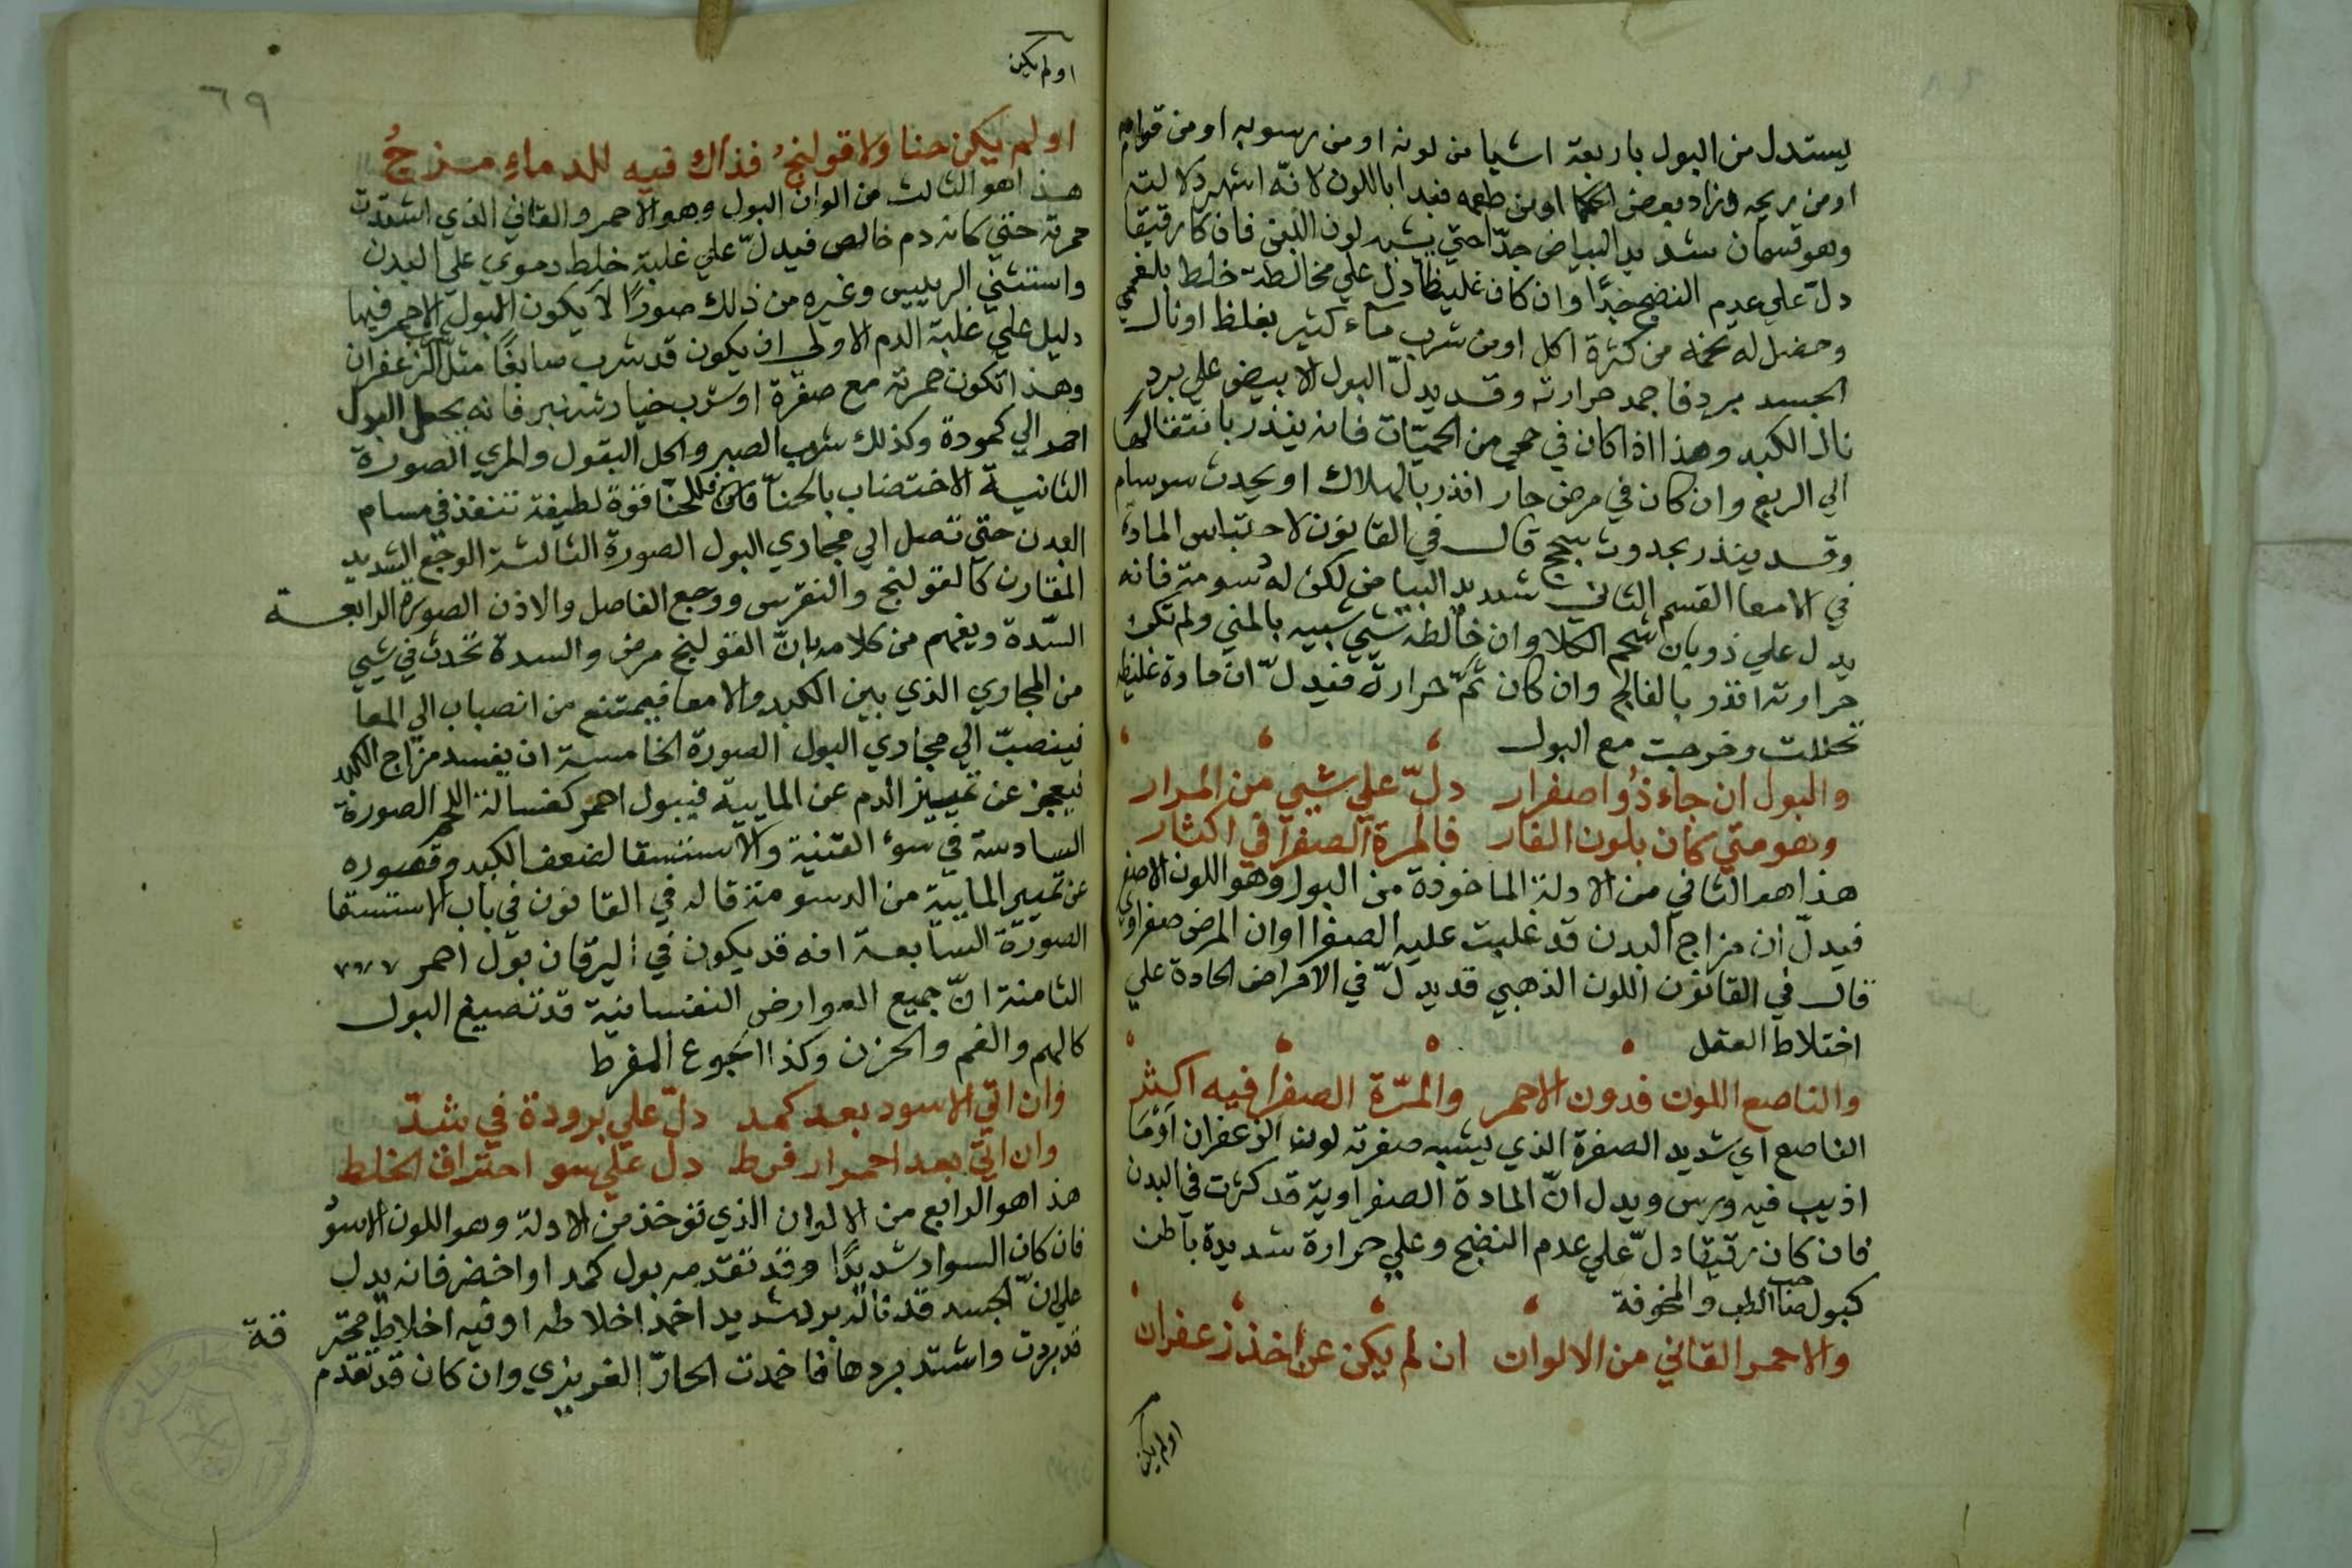 يستدل من البول باربعة اشيا من لونه او من رسوبه او من قوامه
او من ريحه وزاد بعض الحكما او من طعمه فبدا باللون لانّه اشهر دلالته
وهو قسمان شديد البياض جدّا حتي يشبه لون اللبن فان كا رقيقا
دلّ علي عدم النضج جدًّا وان كان غليظًا دلّ علي مخالطة خلط بلغمي
وحصل له تخمة من كثرة اكل او من شرب ماء كثير بغلظ او نال
الجسد برد فاجمد حرارته وقد يدلّ البول الابيض علي برد
نال الكبد وهذا اذا كان في حمي من الحميّات فانه ينذر بانتقالها
الي الربع وان كان في مرض حار انذر بالهلاك او يحدث سرسام
وقد ينذر بحدوث سحج قال في القانون لاحتباس المادة
في الامعا القسم الثاني شديد البياض لكن له دسومة فانه
يدل علي ذوبان شحم الكلا وان خالطه شيي شبيه بالمني ولم تكن
حرارته انذر بالفالج وان كان ثمّ حرارة فيدلّ انّ مادة غليظة
تحللت وخرجت مع البول
والبول ان جاء ذُو اصفرار دلّ علي شيي من المرار
وهو متي كان بلون النار فالمرة الصفرا في اكثار
هذا هو الثاني من الادلة الماخوذة من البول وهو اللون الاصفر
فيدلّ ان مزاج البدن قد غلبت عليه الصفرا او ان المرض صفراوي
قال في القانون اللون الذهبي قد يدلّ في الامراض الحادة علي
اختلاط العقل
والناصع اللون فدون الاحمر والمرّة الصفرا فيه اكثر
الناصع اي شديد الصفرة الذي يشبه صفرته لون الزعفران او ما
اذيب فيه ورس ويدل انّ المادة الصفراوية قد كثرت في البدن
فان كان رقيقا دلّ علي عدم النضج وعلي حرارة شديدة باطن
كبول صاحب الغب والمحرقة
والاحمر القاني من الالوان ان لم يكن عن اخذ زعفران
او لم يكن
او لم يكن
٦٩
او لم يكن حنا ولا قولنجُ فذاك فيه للدماءِ مزجُ
هذا هو الثالث من الوان البول وهو الاحمر والقاني الذي اشتدّت
حمرته حتي كانه دم خالص فيدلّ علي غلبة خلط دموي علي البدن
واستثني الرييس وغيره من ذلك صورًا لا يكون البول الاحمر فيها
دليل علي غلبة الدم الاولي ان يكون قد شرب صابغًا مثل الزعفران
وهذا تكون حمرته مع صفرة او شرب خيار شنبر فانه يجعل البول
احمر الي كمودة وكذلك شرب الصبر واكل البقول والمري الصورة
الثانية الاختضاب بالحنّا فان للحنّا قوّة لطيفة تنفذ في مسام
البدن حتي تصل الي مجاري البول الصورة الثالثة الوجع الشديد
المقارن كالقولنج والنقرس ووجع المفاصل والاذن الصورة الرابعة
السّدة ويفهم من كلامه بانّ القولنج مرض والسدة تحدث في شيي
من المجاري الذي بين الكبد والامعا فيمتنع من انصباب الي المعا
فينصبّ الي مجاري البول الصورة الخامسة ان يفسد مزاج الكبد
فيعجز عن تمييز الدم عن المايية فيبول احمر كغسالة اللحم الصورة
السادسة في سوء القنية والاستسقا لضعف الكبد وقصوره
عن تمييز المايية من الدسومة قاله في القانون في باب الاستسقا
الصورة السابعة انه قد يكون في اليرقان بول احمر
الثامنة انّ جميع العوارض النفسانية قد تصبغ البول
كالهم والغم والحزن وكذا الجوع المفرط
وان اتي الاسود بعد كمد دلّ علي برودة في شدّ
وان اتيَ بعد احمرار فرط دل علي سو احتراق الخلط
هذا هو الرابع من الالوان الذي توخذ من الادلة وهو اللون الاسود
فان كان السواد شديدًا وقد تقدمه بول كمد او اخضر فانه يدل
علي انّ الجسد قد ناله برد شديد اخمد اخلاطه او فيه اخلاط محترقة
قد بردت واشتد بردها فاخمدت الحارّ الغريزي وان كان قد تقدم